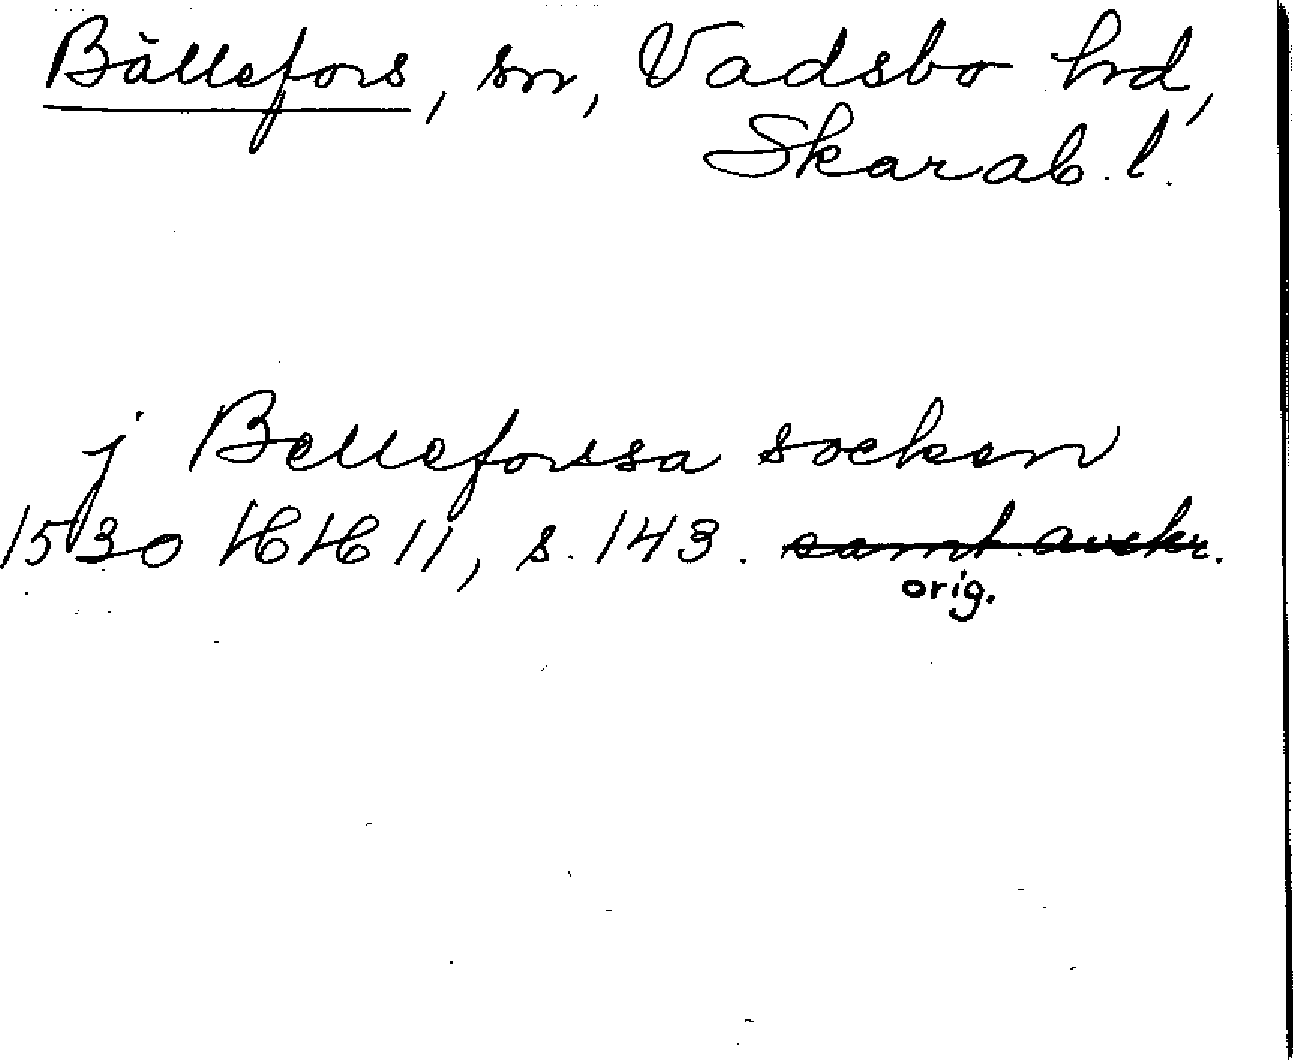 Bällefors, sn, Vadsbo hrd,
Skarab. l.
j Belleforssa socken
1530 HH 11, s. 143. samt. avskr.
orig.